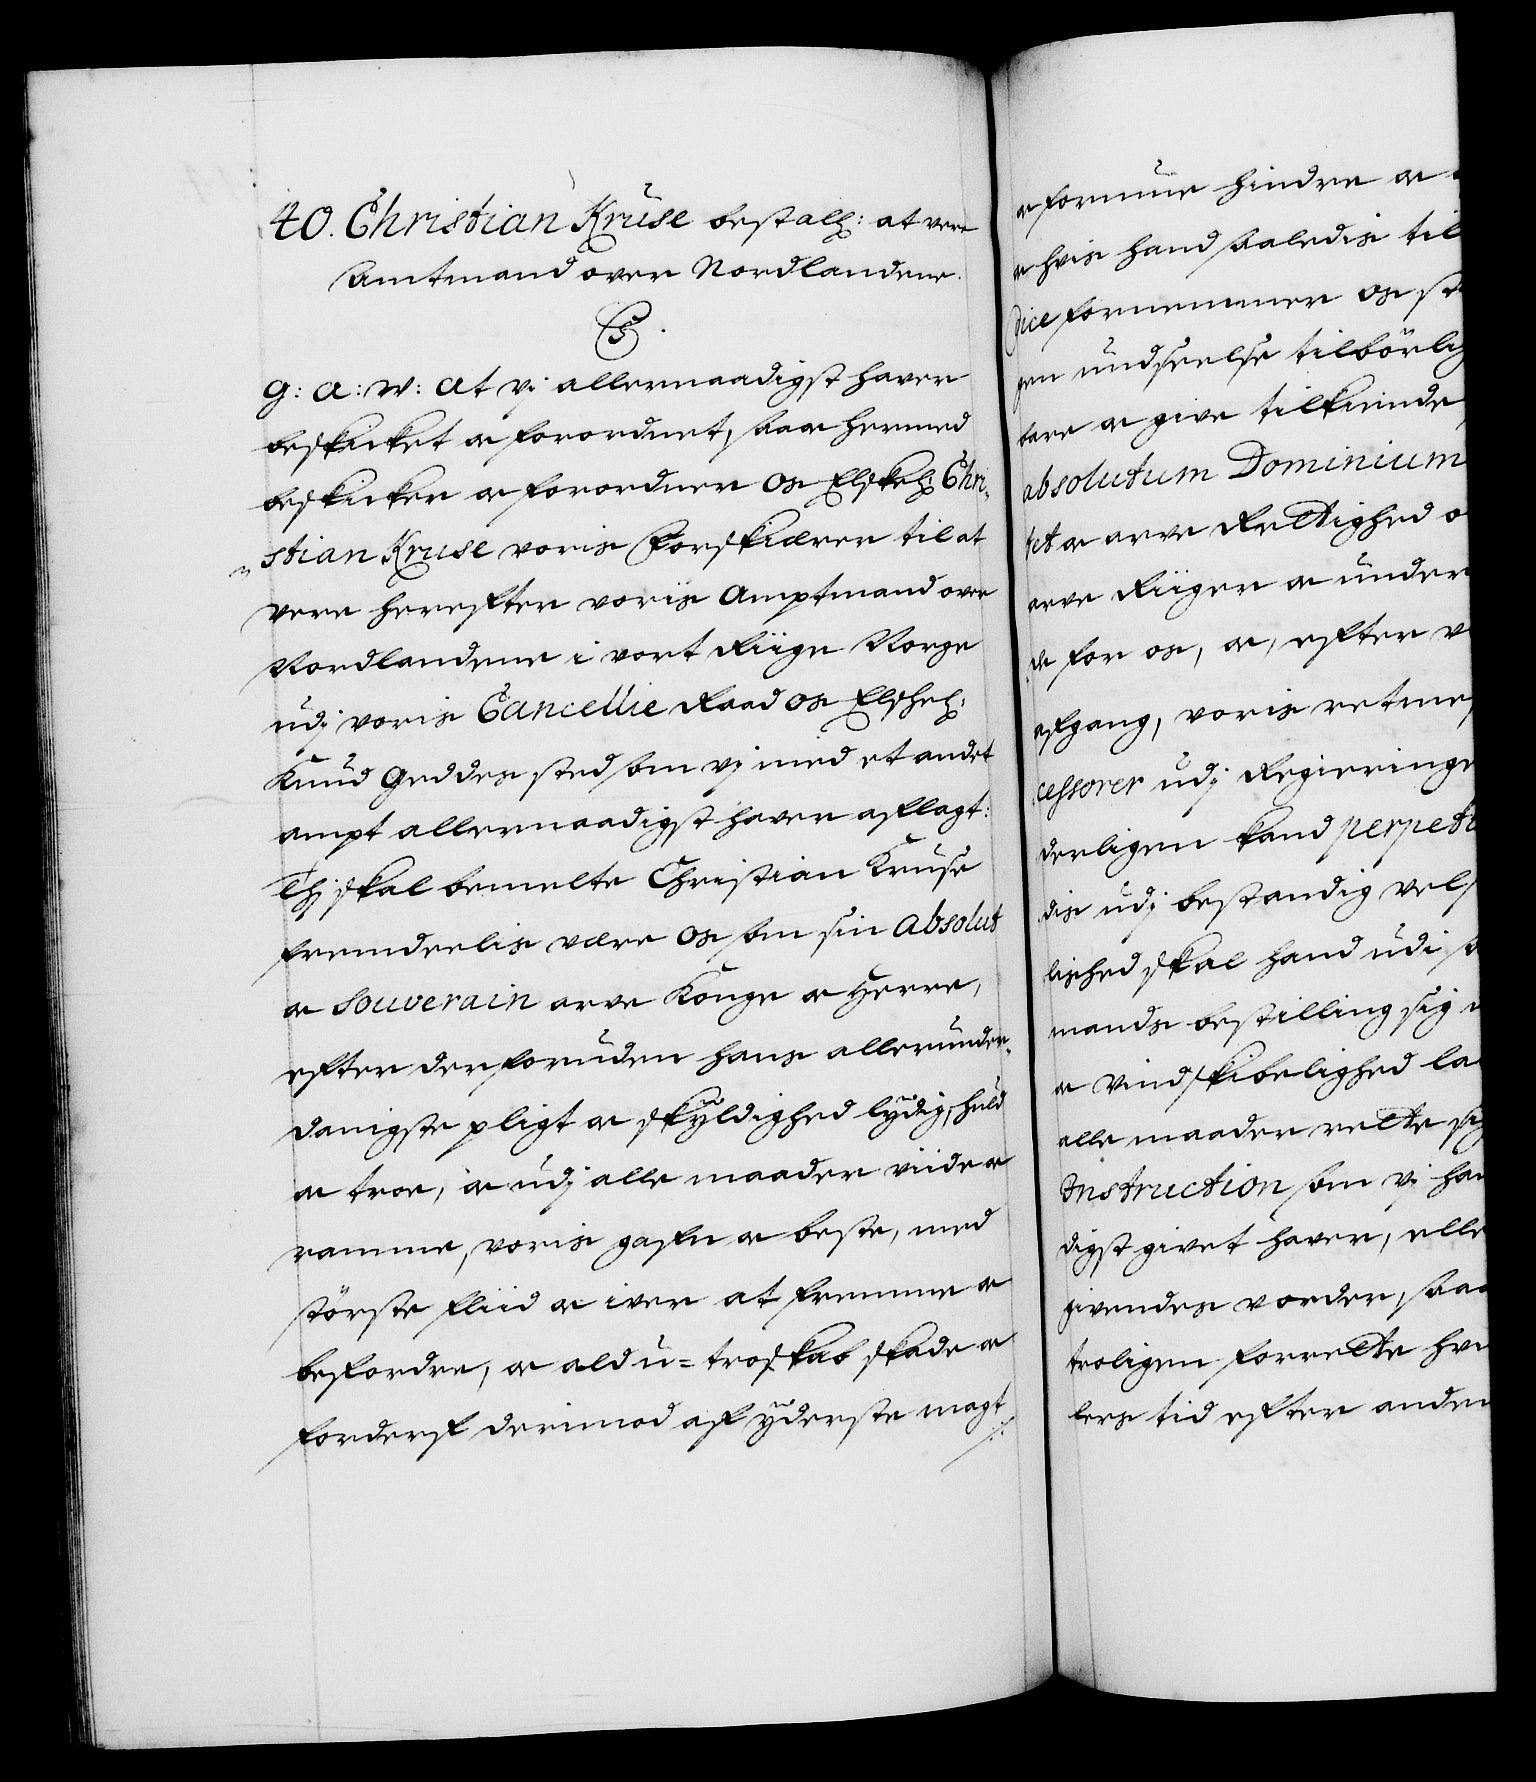 40. Christian Kruse bestalḷ: at vere
Amtmand over Nordlandene.
C5.
G: A: W: At vj allernaadigst haver
beskicket oc forordnet, saa oc hermed
beskicker oc forordner os Elskel: Chri-
stian Kruse voris Forskiærer til at
vere herefter voris Amptmand over
Nordlandene i vort Riige Norge
udj voris Cancellie Raad os Elskel:
Knud Geddes sted som vj med et andet
ampt allernaadigst haver aflagt:
Thj skal bemelte Christian Kruse
fremdeelis være os som sin absolut
oc souverain arve Konge oc Herre,
efter derforuden hans allerunder-
danigste pligt oc skyldighed lydig, huld
oc troe, oc udj alle maader viide oc
ramme, voris gafn oc beste, med
största fliid oc iver at fremme oc
befordre, oc ald u-troskab skade oc
forderf derimod af yderste magt
oc formue hindre oc
oc hvis hand saaledis til
dice fornemmer os st
gen undseelse tilbörlig
bare oc give tilkiende
absolutum Dominium
tet oc arve Rettighed o
arve Riiger oc under
de for os, oc, efter v
afgang, voris retmes
cessorer udj Regieringe
derligen kand perpetu
dis udj bestandig vels
lished skal hand udi s
mands bestilling sig m
oc vindskibelighed la
alle maader rette sig
Instruction som vj ha
digst givet haver, elle
givendes vorder, saa
troligen forrette hve
lers tid efter anden